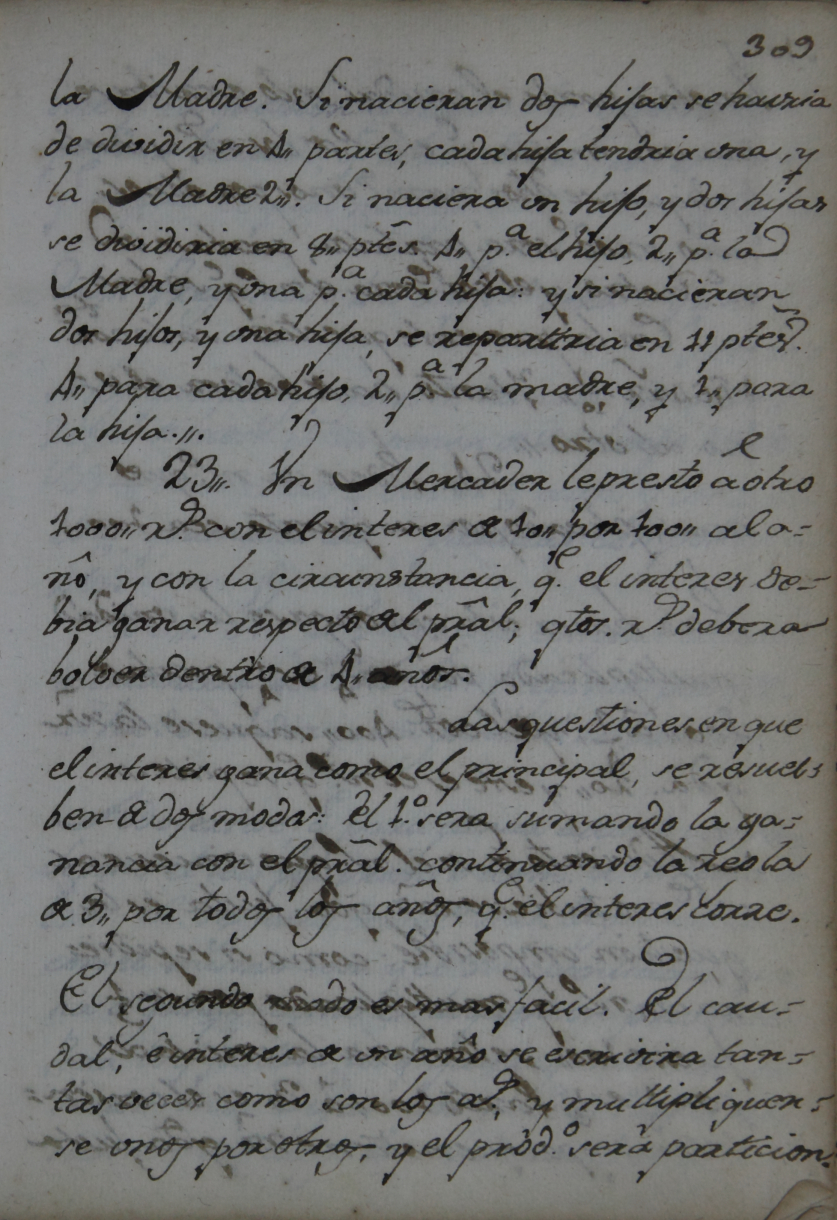 309
la Madre. Si nacieran dos hijas se havria
de dividir en 4,, partes, cada hija tendria una, y
la Madre 2,,. Si naciera un hijo, y dos hijas
se dividiria en 8,, ptẽs. 4,, p.ª el hijo, 2,, p.ª la
Madre, y una p.ª cada hija: y si nacieran
dos hijos, y una hija, se repartiria en 11 ptẽs.
4,, para cada hijo, 2,, p.ª la madre, y 1,, para
la hija.,,.
23,,. Un Mercader le presto a otro
1000,, r.s con el interes de 10,, por 100,, al a=
ño, y con la circunstancia, q.e el interes de=
bia ganar respecto del prãl; qtos. r.s debera
bolver dentro de 4,, años.
Las questiones en que
el interes gana como el principal, se resuel=
ben de dos modos: El 1.º sera sumando la ga=
nancia con el prãl. continuando la regla
de 3,, por todos los años, q.e el interes corre.
El segundo modo es mas facil. El cau=
dal, é interes de un año se escrivira tan=
tas veces como son los a.s, y multipliquen=
se unos por otros, y el prod.º sera particion.